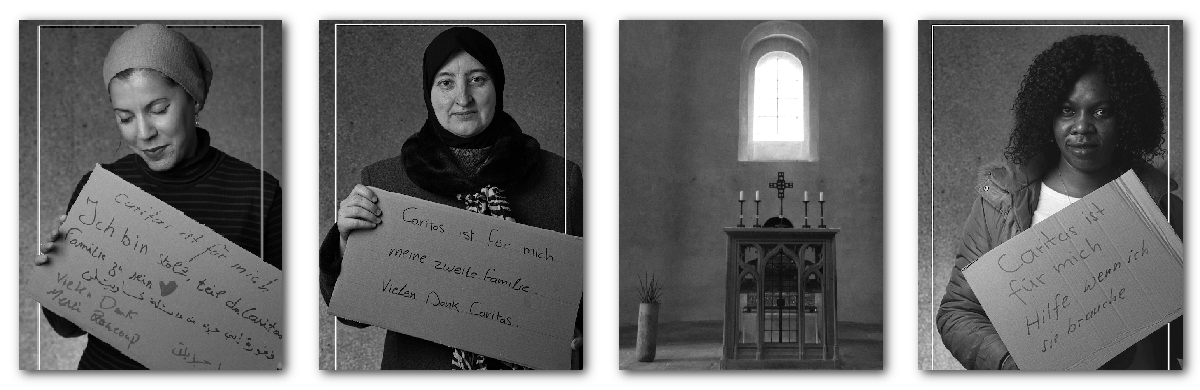 Caritas ist für mich
Ich bin stolz, teil da Caritas
Familie zu sein
Vielen Dank
Merci Beaucoup
Caritas ist für mich
meine zweite Familie.
Vielen Dank Caritas.
Caritas ist
für mich
Hilfe wenn ich
sie brauche